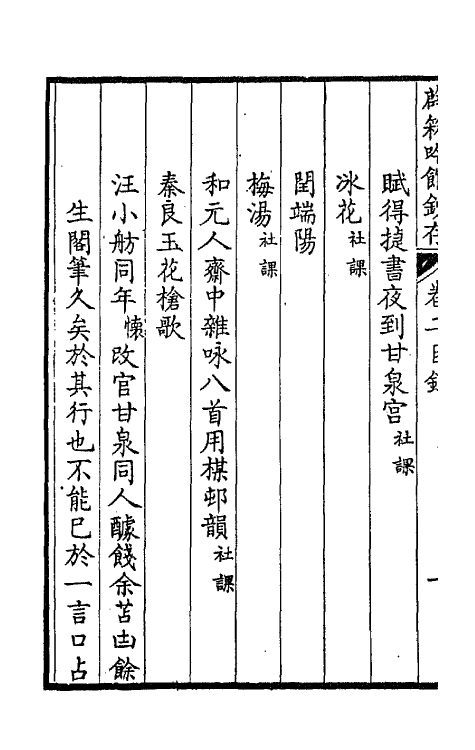 吟館鈔存 卷二目錄 一
賦得捷書夜到甘泉宮社課
冰花社課
閏端陽
梅湯社課
和元人齋中雜咏八首用楳邨韻社課
秦良玉花槍歌
汪小舫同年懷改官甘泉同人醵餞余苫凷餘
生閣筆久矣於其行也不能巳於一言口占